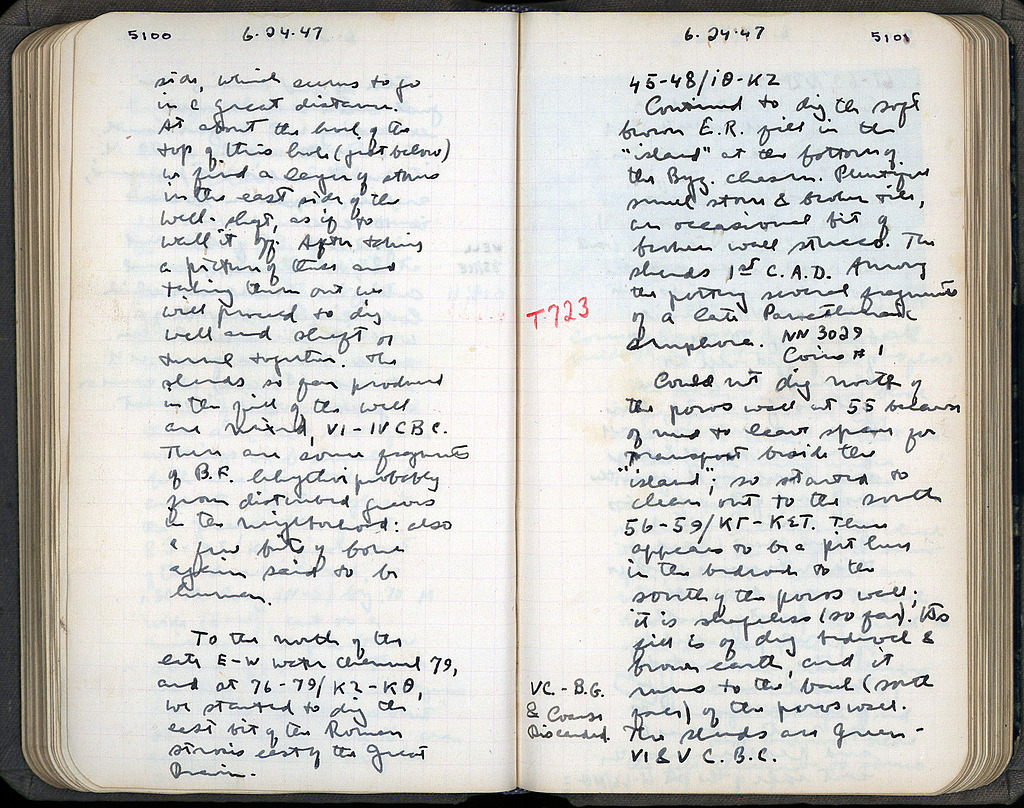 5100 6.24.47
side, which seems to go
in a great distance.
At about the level of the
top of this hole (just below)
we find a layer of stones
in the east side of the
well-shaft, as if to
wall it off. After taking
a picture of this and
taking them out we
will proceed to dig
well and shaft or
tunnel together. The
sherds so far produced
in the fill of the well
are mixed, VI-IV C B C.
There are some fragments
of B.F. lekythoi probably
from disturbed graves
in the neighborhood: also
a few bits of bone
again said to be
human.
To the north of the
late E-W water channel 79,
and at 76-79/KZ-KΘ,
we started to dig the
east bit of the Roman
strosis east of the Great
Drain.
6.24.47 5101
45-48/ΙΘ-KZ
Continued to dig the soft
brown E.R. fill in the
"island" at the bottom of
the Byz. chasm. Plentiful
small stones & broken tiles,
an occasional bit of
broken wall stucco. The
sherds 1st C. A.D. Among
the pottery several fragments
of a late Panathenaic
amphora. NN 3029
Coins # 1
T.723
Could not dig north of
the poros wall at 55 because
of need to leave space for
transport beside the
"island"; so started to
clean out to the south
56-59/ΚΓ-ΚΣΤ. There
appears to be a pit here
in the bedrock to the
south of the poros wall;
it is shapeless (so far). Its
fill is of dug bedrock &
brown earth and it
runs to the back (south
face) of the poros wall.
The sherds are Greek -
VI & V C. B.C.
VC. - B.G.
& Coarse
Discarded.